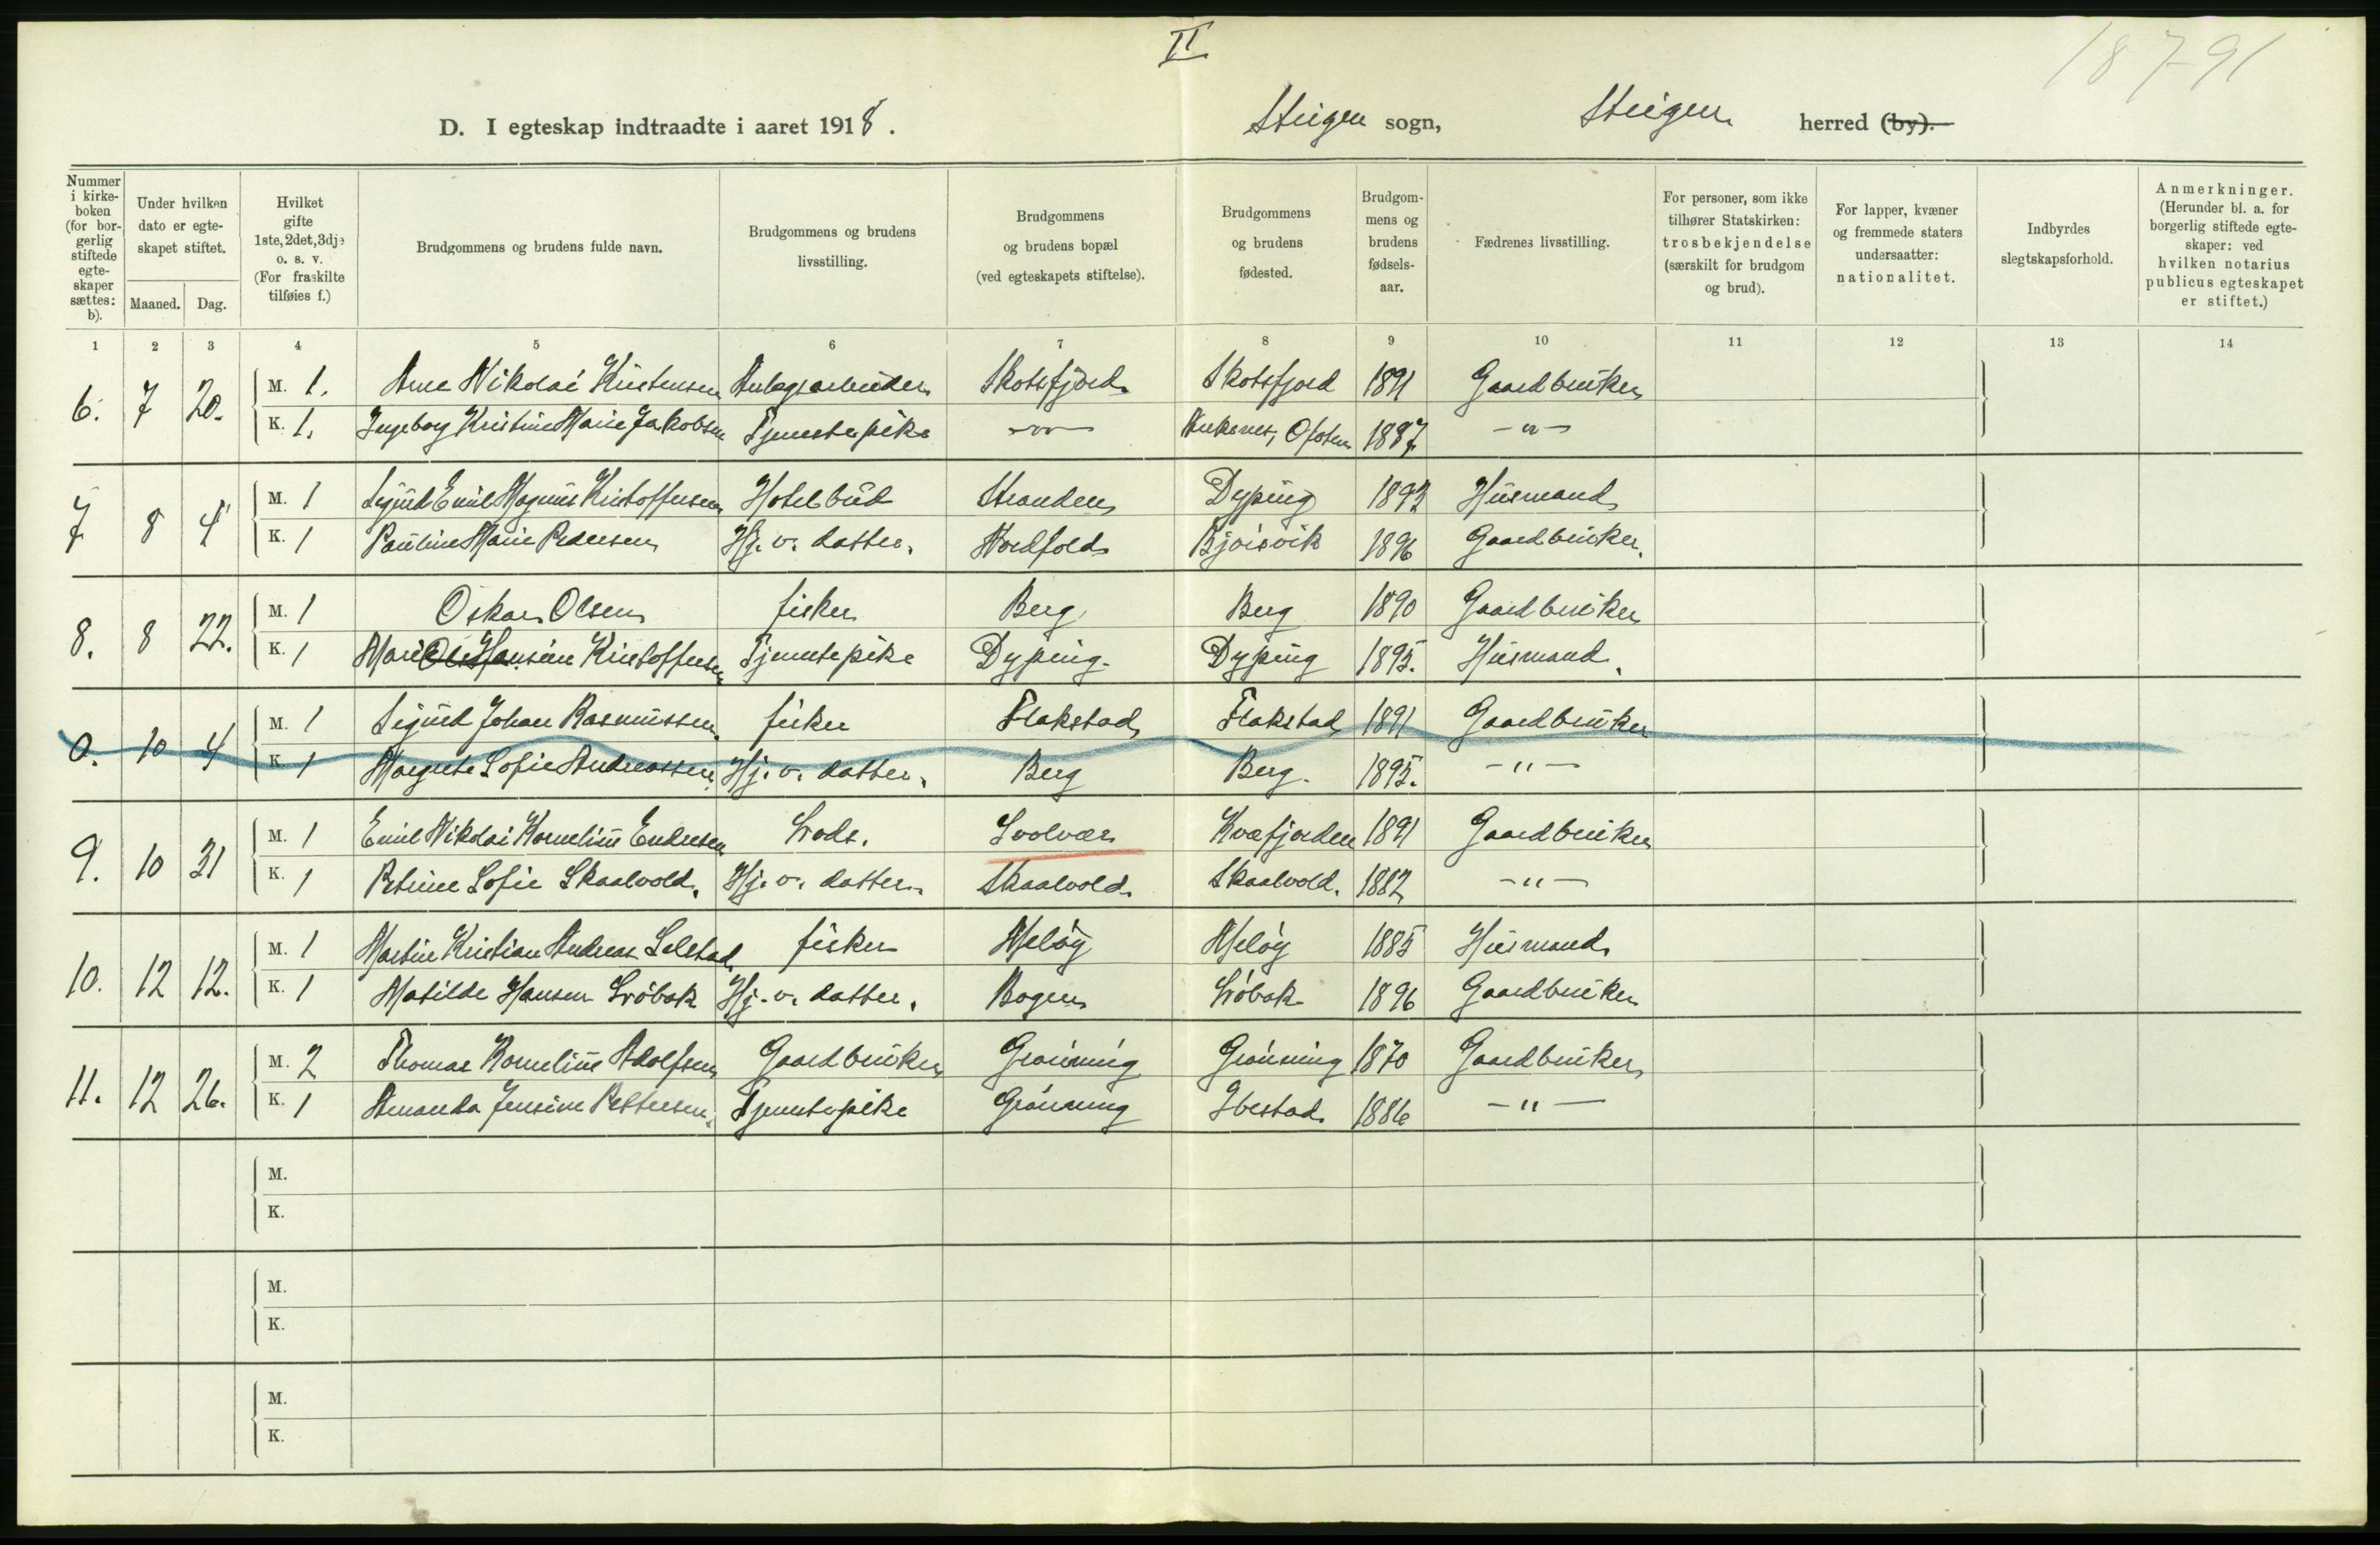 II
18791
D. I egteskap indtraadte i aaret 1918. Steigen sogn, Steigen herred (by).
Nummer i kirkeboken (for borgerlig stiftede egteskaper sættes: b).
Under hvilken dato er egteskapet stiftet.
Maaned. Dag.
Hvilket gifte 1ste, 2det, 3dje o. s. v. (For fraskilte tilføies f.)
Brudgommens og brudens fulde navn.
Brudgommens og brudens livsstilling.
Brudgommens og brudens bopæl (ved egteskapets stiftelse).
Brudgommens og brudens fødested.
Brudgommens og brudens fødselsaar.
Fædrenes livsstilling.
For personer, som ikke tilhører Statskirken: trosbekjendelse (særskilt for brudgom og brud).
For lapper, kvæner og fremmede staters undersaatter: nationalitet.
Indbyrdes slegtskapsforhold.
Anmerkninger. (Herunder bl. a. for borgerlig stiftede egteskaper: ved hvilken notarius publicus egteskapet er stiftet.)
1 2 3 4 5 6 7 8 9 10 11 12 13 14
6. 7 20. M. 1. Arne Nikolai Kristensen Anlegsarbeider Skotsfjord Skotsfjord 1891 Gaardbruker
K. 1. Ingeborg Kristine Marie Jakobsen Tjenestepike -„- Ankenes, Ofoten 1887 -„-
7 8 4 M. 1 Sigurd Emil Magnus Kristoffersen Hotelbud Stranden Dyping 1893 Husmand
K. 1 Pauline Marie Pedersen Hj. v. datter. Nordfold Bjørsvik 1896 Gaardbruker.
8. 8 22. M. 1 Oskar Olsen fisker Berg Berg 1890 Gaardbruker
K. 1 Marie Ole Hansine Kristoffersen Tjenestepike Dyping. Dyping 1895. Husmand.
0. 10 4 M. 1 Sigurd Johan Rasmussen. fisker Flakstad Flakstad 1891 Gaardbruker
K. 1 Margrete Sofie Andreassen. Hj. v. datter. Berg Berg. 1895. -„-
9. 10 31 M. 1 Emil Nikolai Kornelius Endresen Lods. Svolvær Kvæfjorden 1891 Gaardbruker
K. 1 Petrine Sofie Skaalvold. Hj. v. datter. Skaalvold. Skaalvold. 1882 -„-
10. 12 12. M. 1 Martin Kristian Andreas Selstad fisker Meløy Meløy 1885 Husmand
K. 1 Matilde Hansen Løbak Hj. v. datter. Bogen Løbak 1896 Gaardbruker
11. 12 26. M. 2 Thomas Kornelius Adolfsen Gaardbruker Grønning Grønning 1870 Gaardbruker
K. 1 Amanda Jensine Pettersen. Tjenestepike Grønning Ibestad 1886 -„-
M.
K.
M.
K.
M.
K.